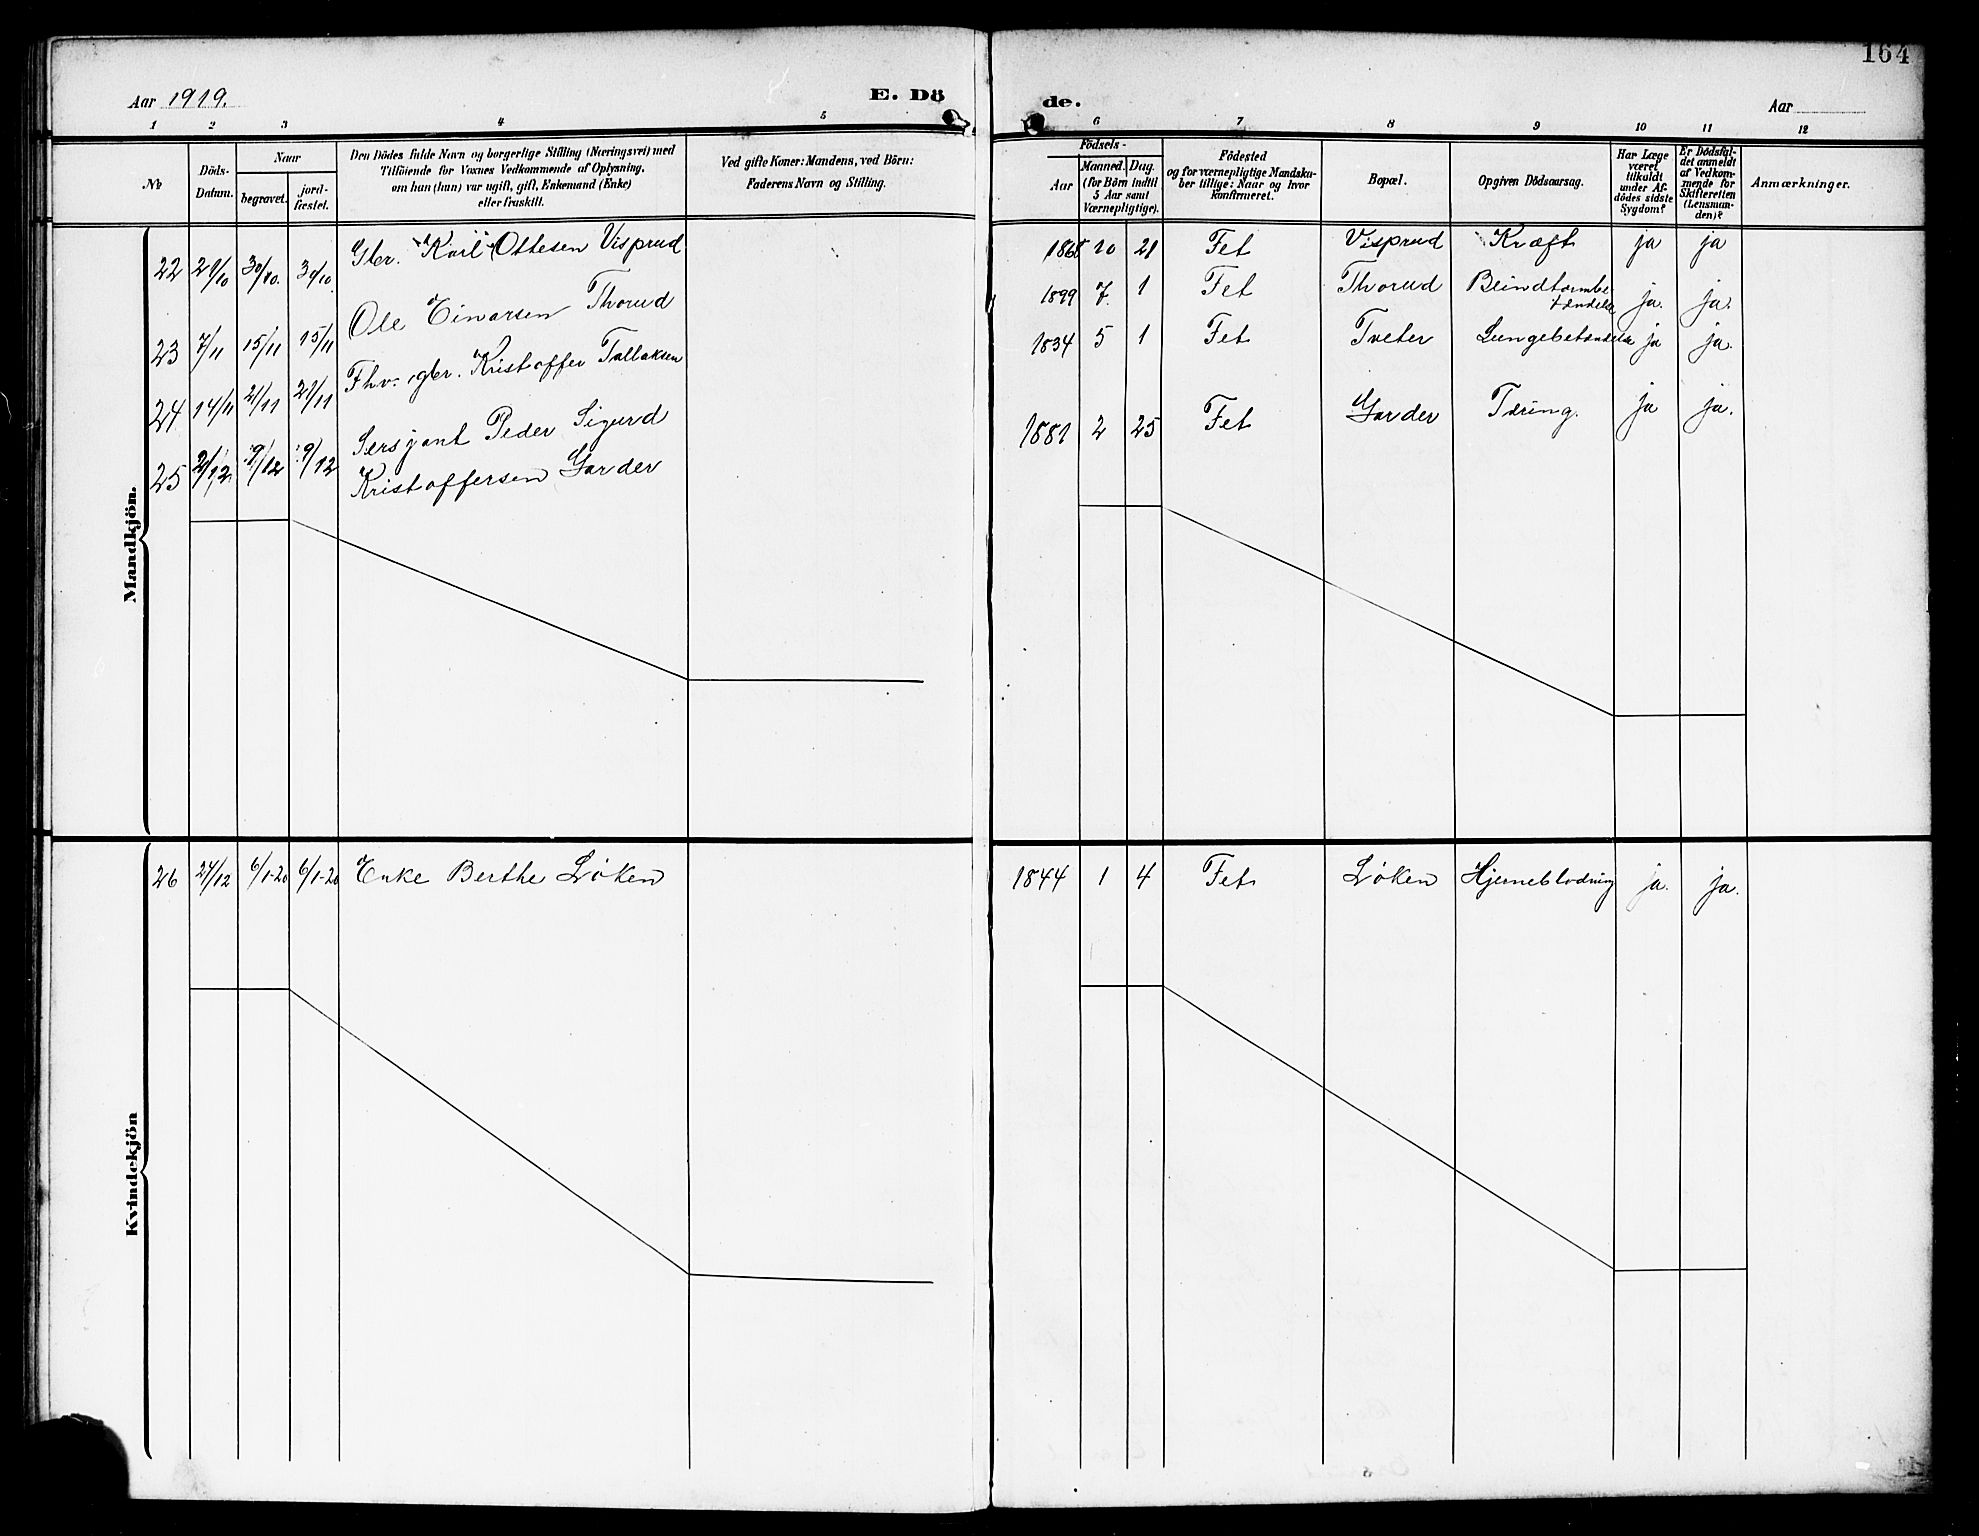 164
Aar 1919.
E. Dö
de.
Aar
1 2 3 4 5
6 7 8 9 10 11 12
№
Döds-
Datum.
Naar
begravet.
jord-
fæstet.
Den Dödes fulde Navn og borgerlige Stilling (Næringsvei) med
Tilföiende for Voxnes Vedkommende af Oplysning,
om han (hun) var ugift, gift, Enkemand (Enke)
eller fraskilt.
Ved gifte Koner: Mandens, ved Börn:
Faderens Navn og Stilling.
Födsels-
Aar
Maaned. Dag.
(for Börn indtil
5 Aar samt
Værnepligtige).
Födested
og for værnepligtige Mandska-
ber tillige: Naar og hvor
konfirmeret.
Bopæl.
Opgiven Dödsaarsag.
Har Læge
været
tilkaldt
under Af-
dödes sidste
Sygdom?
Er Dödsfal-
det anmeldt
af Vedkom-
mende for
Skifteretten
(Lensman-
den)?
Anmærkninger.
Mandkjön.
22 29/10 30/10. 30/10 Gbr. Karl Ottesen Visprud 10 21 Fet Visprud Kræft ja ja
23 7/11 15/11 15/11 Ole Einarsen Thorud 1899 7. 1 Fet Thorud Blindtarmbe
tændelse ja. ja.
24 14/11 21/11 21/11 Fhv. gbr. Kristoffer Tollaksen 1834 5 1 Fet Tveter Lungebetændelse ja ja.
25 2/12 9/12 9/12 Sersjant Peder Sigurd
Kristoffersen Garder 1881 2 25 Fet Garder Tæring. ja ja.
Kvindekjön
26 24/12 6/1-20 6/1-20 Enke Berthe Løken 1844 1 4 Fet Løken Hjerneblødning ja. ja.